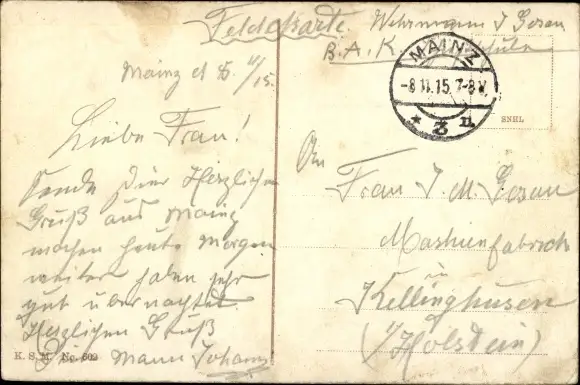 Feldpostkarte. Wehrmann J Gosau
B. A. K.
MAINZ
-8.11.15. 7-8 V.
* 3 n.
Mainz d 8 11/15.
Liebe Frau!
Sende Dier Herzlichen
Gruß aus Mainz
machen heute Morgen
weiter haben sehr
gut übernachtet
Herzlichen Gruß
Mann Johann
K. S. M. No. 609
SNEL
An
Frau J. M. Gosau
Mashienfabrick
in
Kellinghusen
(/Holstein)